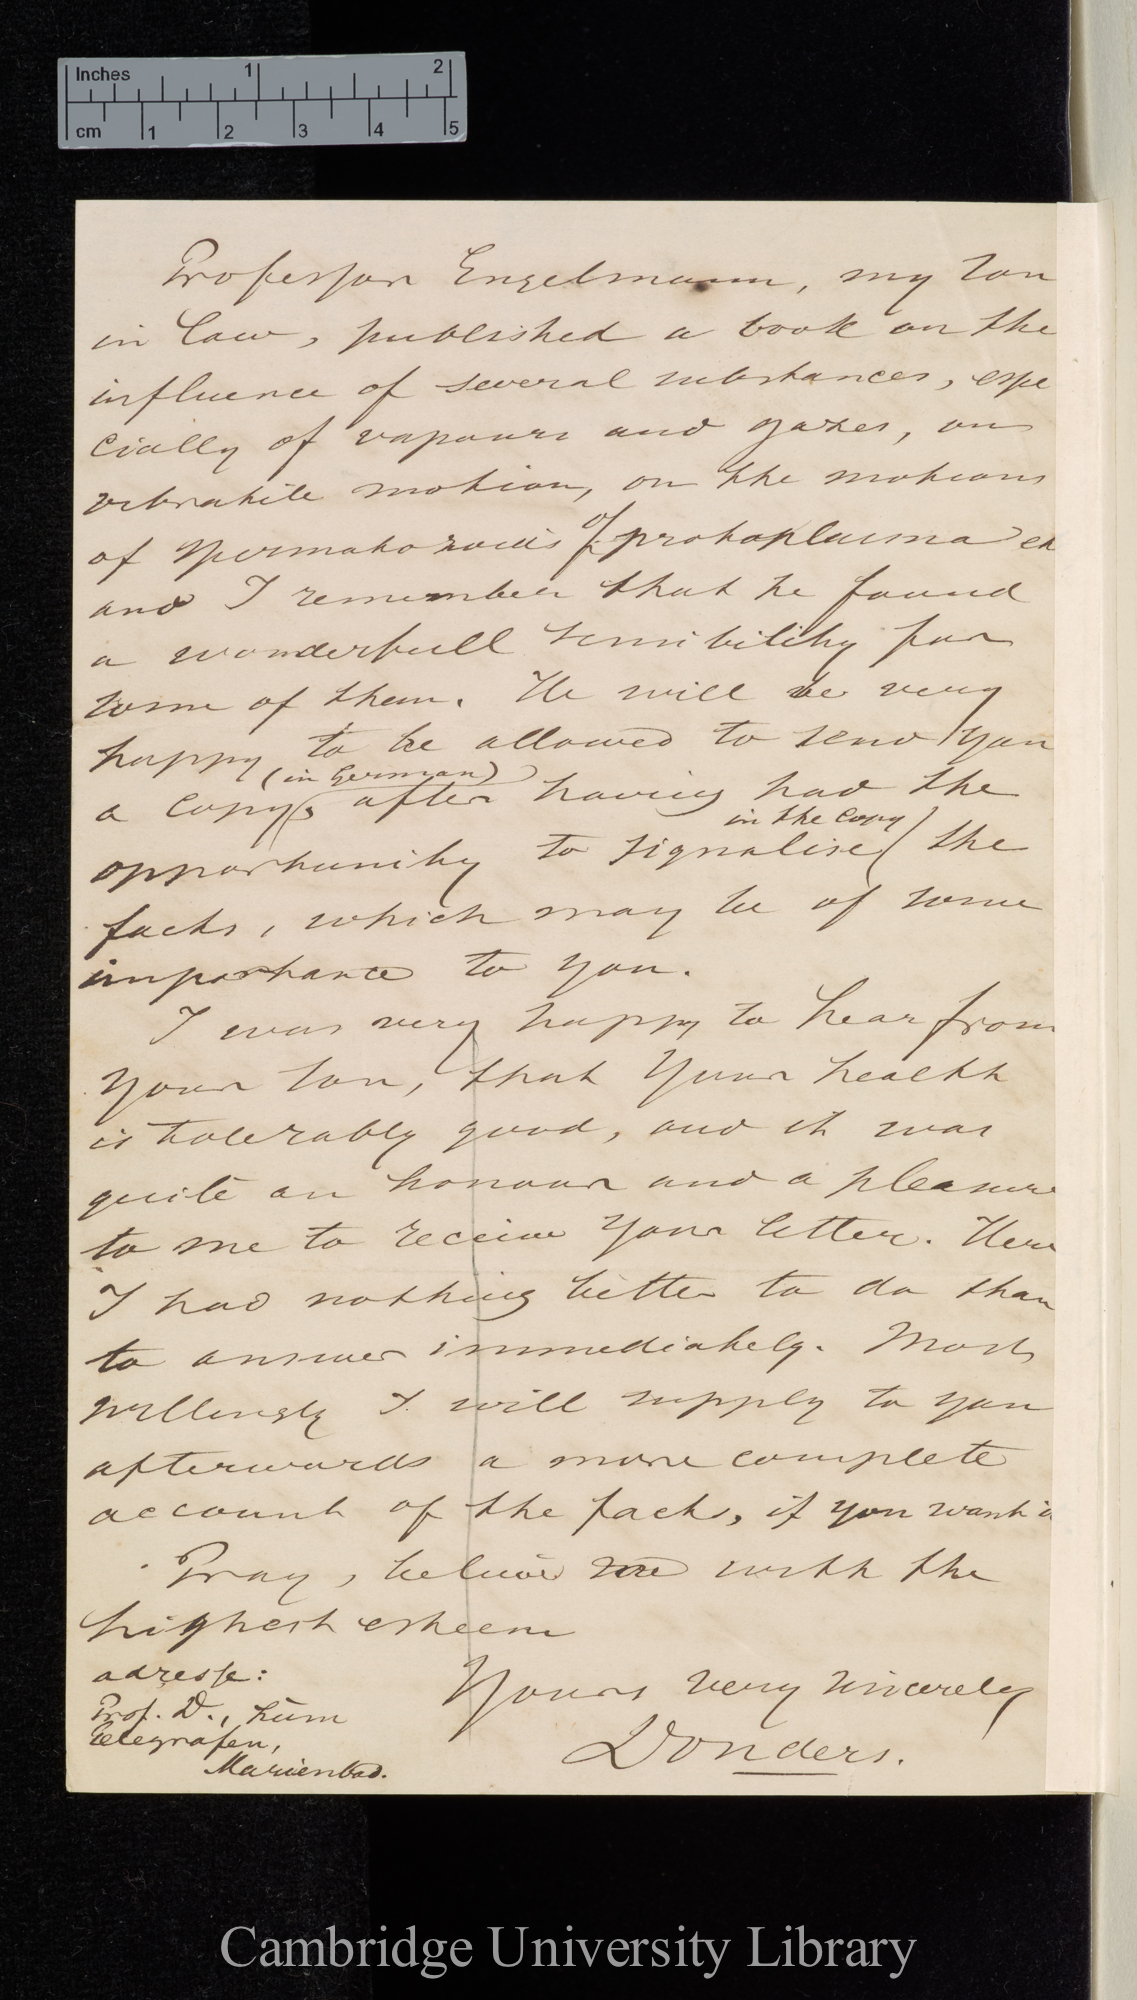 Inches 1 2
cm 1 2 3 4 5
Professor Engelmann, my son
in law, published a book on the
influence of several substances, espe
cially of vapours and gazes, on
vibratile motion, on the motions
of spermatozoids of protoplasma et
and I remember that he found
a wonderfull sensibility for
some of them. He will be very
happy to be allowed to send you
(in German)
a copy, after having had the
in the copy
opportunity to signalise the
facts, which may be of some
importance to you.
I was very happy to hear from
Your son, that Your health
is tolerably good, and it was
quite an honour and a pleasure
to me to receive Your letter. Here
I had nothing better to do than
to answer immediately. Most
willingly I will supply to you
afterwards a more complete
account of the facts, if you want i
Pray, believe me with the
highest esteem
Yours very sincerely
Donders.
adresse:
Prof. D., zum
Telegrafen,
Marienbad.
Cambridge University Library